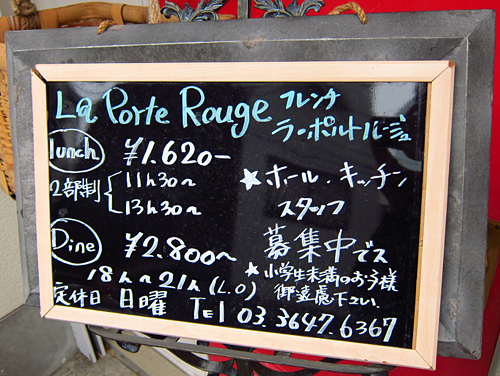 La Porte Rouge フレンチ
ラ・ポルト・ルージュ
lunch ¥1.620-
2部制 { 11h30~
13h30~
★ ホール.キッチン
スタッフ
募集中でス
Dine ¥2.800~
18h~21h(L.O)
★小学生未満のお子様
御遠慮下さい.
定休日 日曜 TEl 03.3647.6367